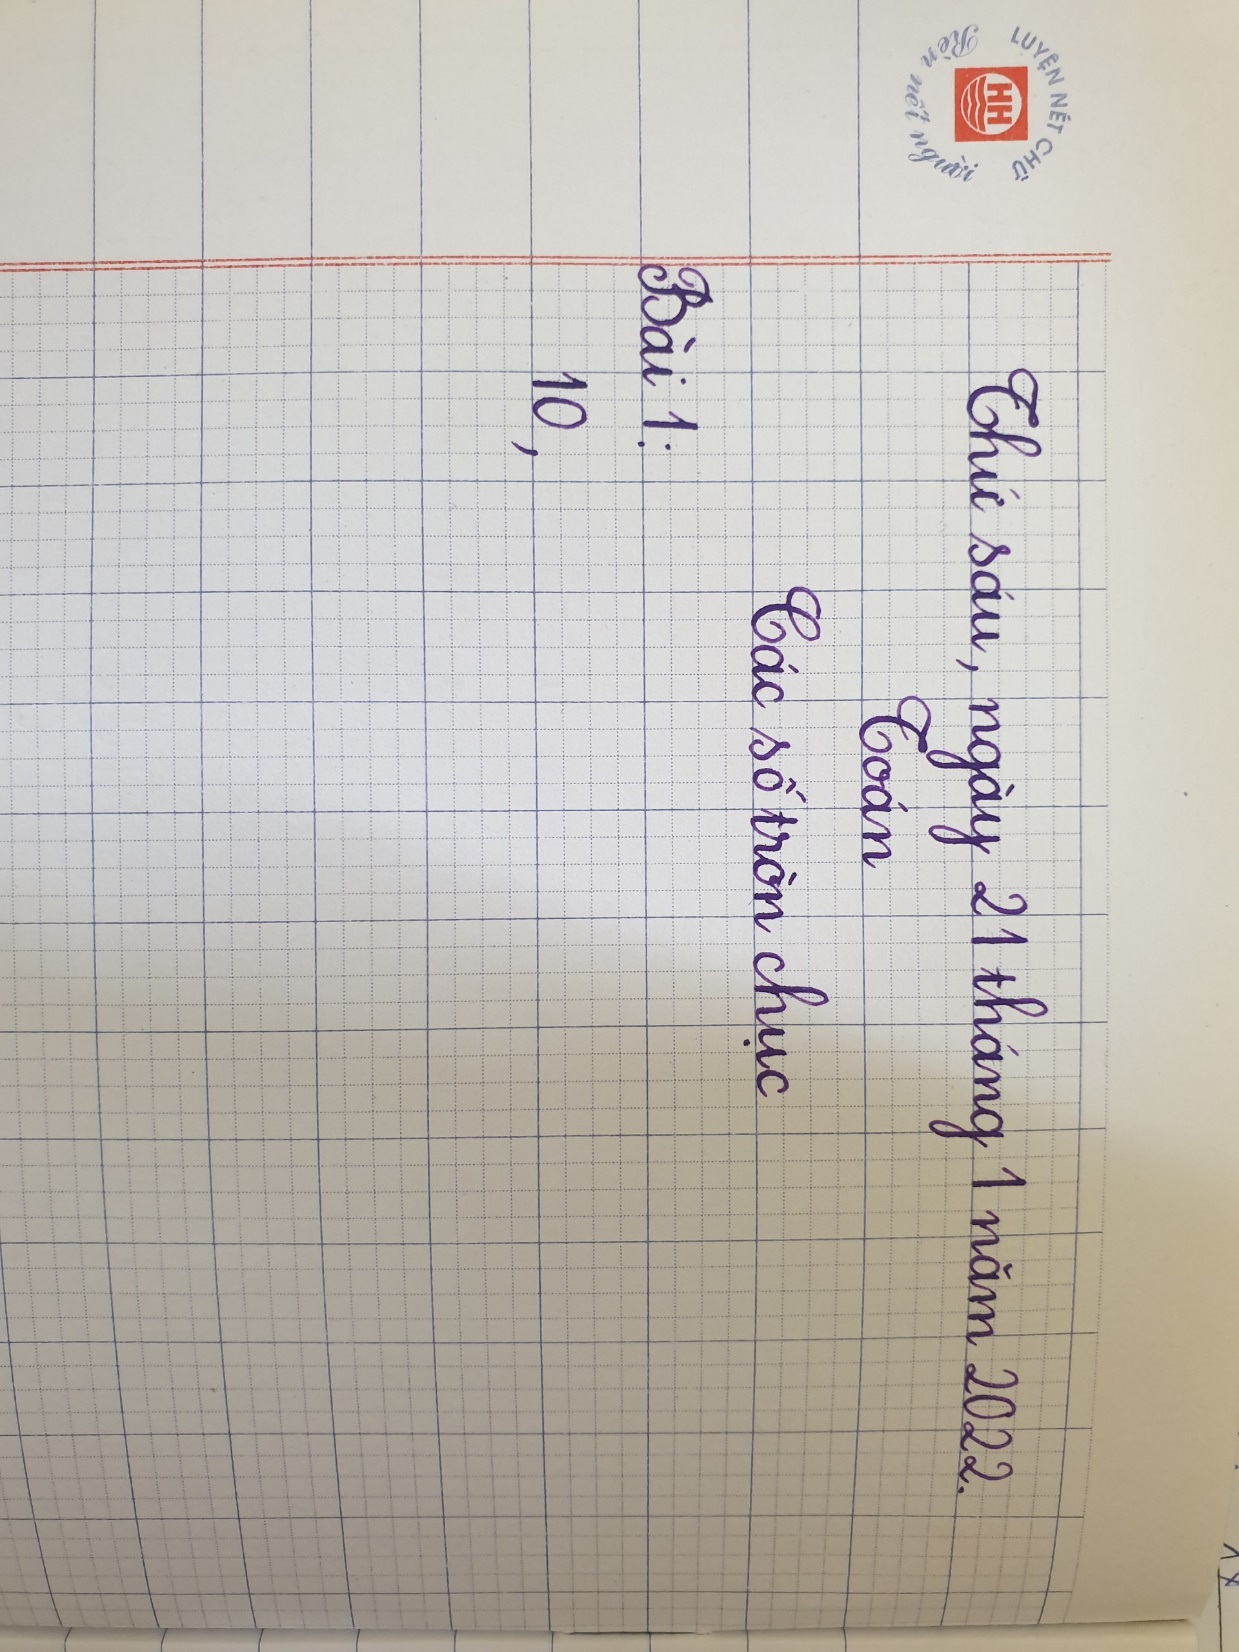 LUYỆN NÉT CHỮ
HH
Rèn nết người
Thứ sáu, ngày 21 tháng 1 năm 2022.
Toán
Các số tròn chục
Bài 1:
10,